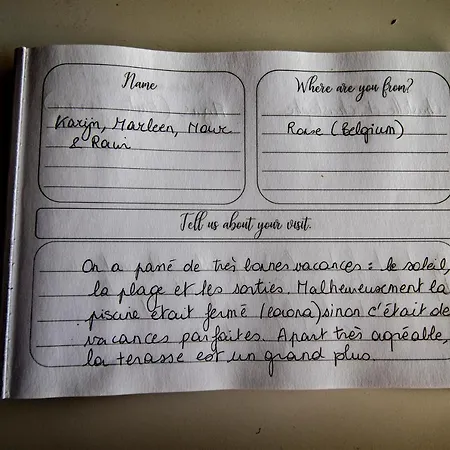 Name
Where are you from?
Karijn, Marleen, Nowe
& Rawi
Rose (Belgium)
Tell us about your visit.
On a passé de très bonnes vacances : le soleil,
la plage et les sorties. Malheureusement la
piscine était fermé (corona) sinon c'était de
vacances parfaites. Apart très agréable,
la terasse est un grand plus.